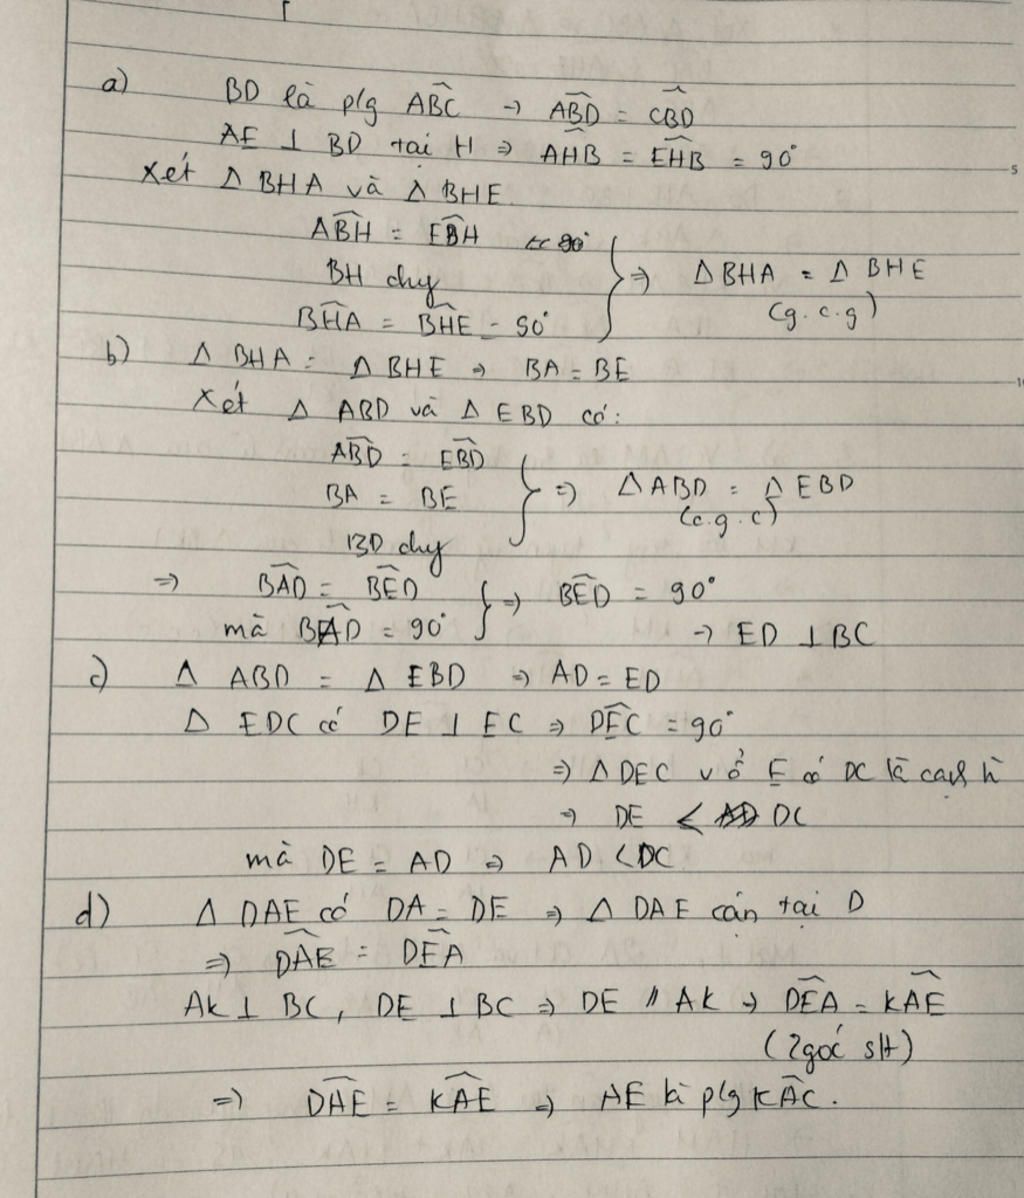 a) BD là p/g ABC → ABD = CBD
AE ⊥ BD tại H ⇒ AHB = EHB = 90°
Xét Δ BHA và Δ BHE
ABH = EBH
BH chg } ⇒ Δ BHA = Δ BHE
BHA = BHE = 90° (g.c.g)
b) Δ BHA = Δ BHE → BA = BE
Xét Δ ABD và Δ EBD có:
ABD = EBD
BA = BE } ⇒ Δ ABD = Δ EBD
BD chg (c.g.c)
⇒ BAD = BED } ⇒ BED = 90°
mà BAD = 90° → ED ⊥ BC
c) Δ ABD = Δ EBD ⇒ AD = ED
Δ EDC có DE ⊥ EC ⇒ DEC = 90°
⇒ Δ DEC v ở E có DC là cạnh h
⇒ DE < DC
mà DE = AD ⇒ AD < DC
d) Δ DAE có DA = DE ⇒ Δ DAE cân tại D
⇒ DAE = DEA
AK ⊥ BC, DE ⊥ BC ⇒ DE // AK → DEA = KAE
(2 góc slt)
⇒ DAE = KAE ⇒ AE là p/g KAC.